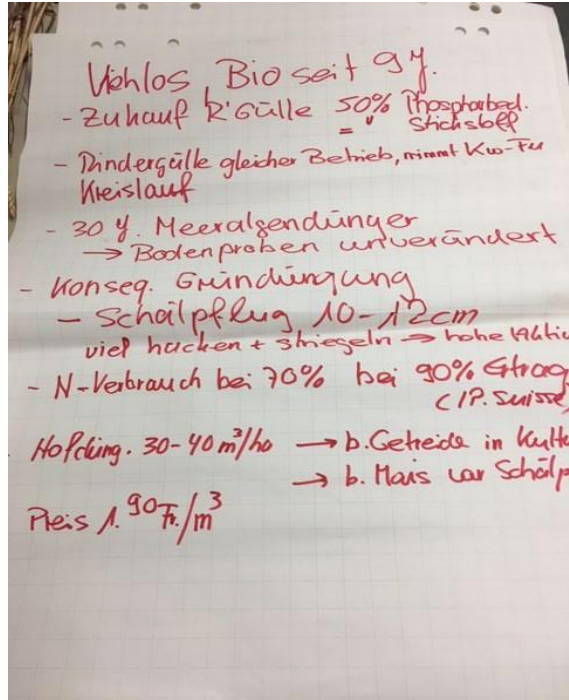 Viehlos, Bio seit 9 y.
- Zukauf R'Gülle 50% Phosphorbed.
= " Stickstoff
- Rindergülle gleicher Betrieb, nimmt Kw-Fu
Kreislauf
- 30 y. Meeralgendünger
→ Bodenproben unverändert
- Konseq. Gründüngung
- Schälpflug 10-12cm
viel hacken + striegeln → hohe
- N-Verbrauch bei 70% bei 90% Ertrag
(IP. Suisse)
Hofdüng. 30-40 m³/ha → b. Getreide in
→ b. Mais vor
Preis 1.90 Fr./m³